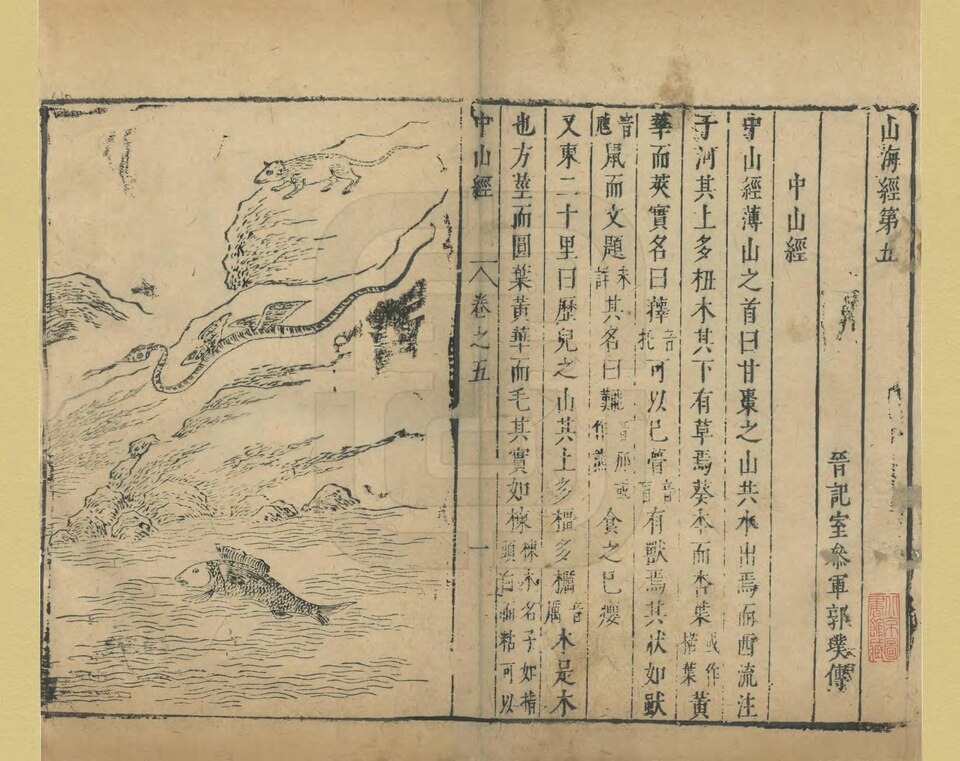 山海經第五
晉記室參軍郭璞傳
中山經
中山經薄山之首曰甘棗之山共水出焉而西流注
于河其上多杻木其下有草焉葵本而杏葉或作楛葉黃
華而莢實名曰蘀音托可以已瞢音盲有獸焉其狀如
音鼠而文題未詳其名曰音那或作熊食之已癭
又東二十里曰歷兒之山其上多橿多櫔音厲木是木
也方莖而圓葉黃華而毛其實如楝楝木名子如指頭白而粘可以
中山經 卷之五 一